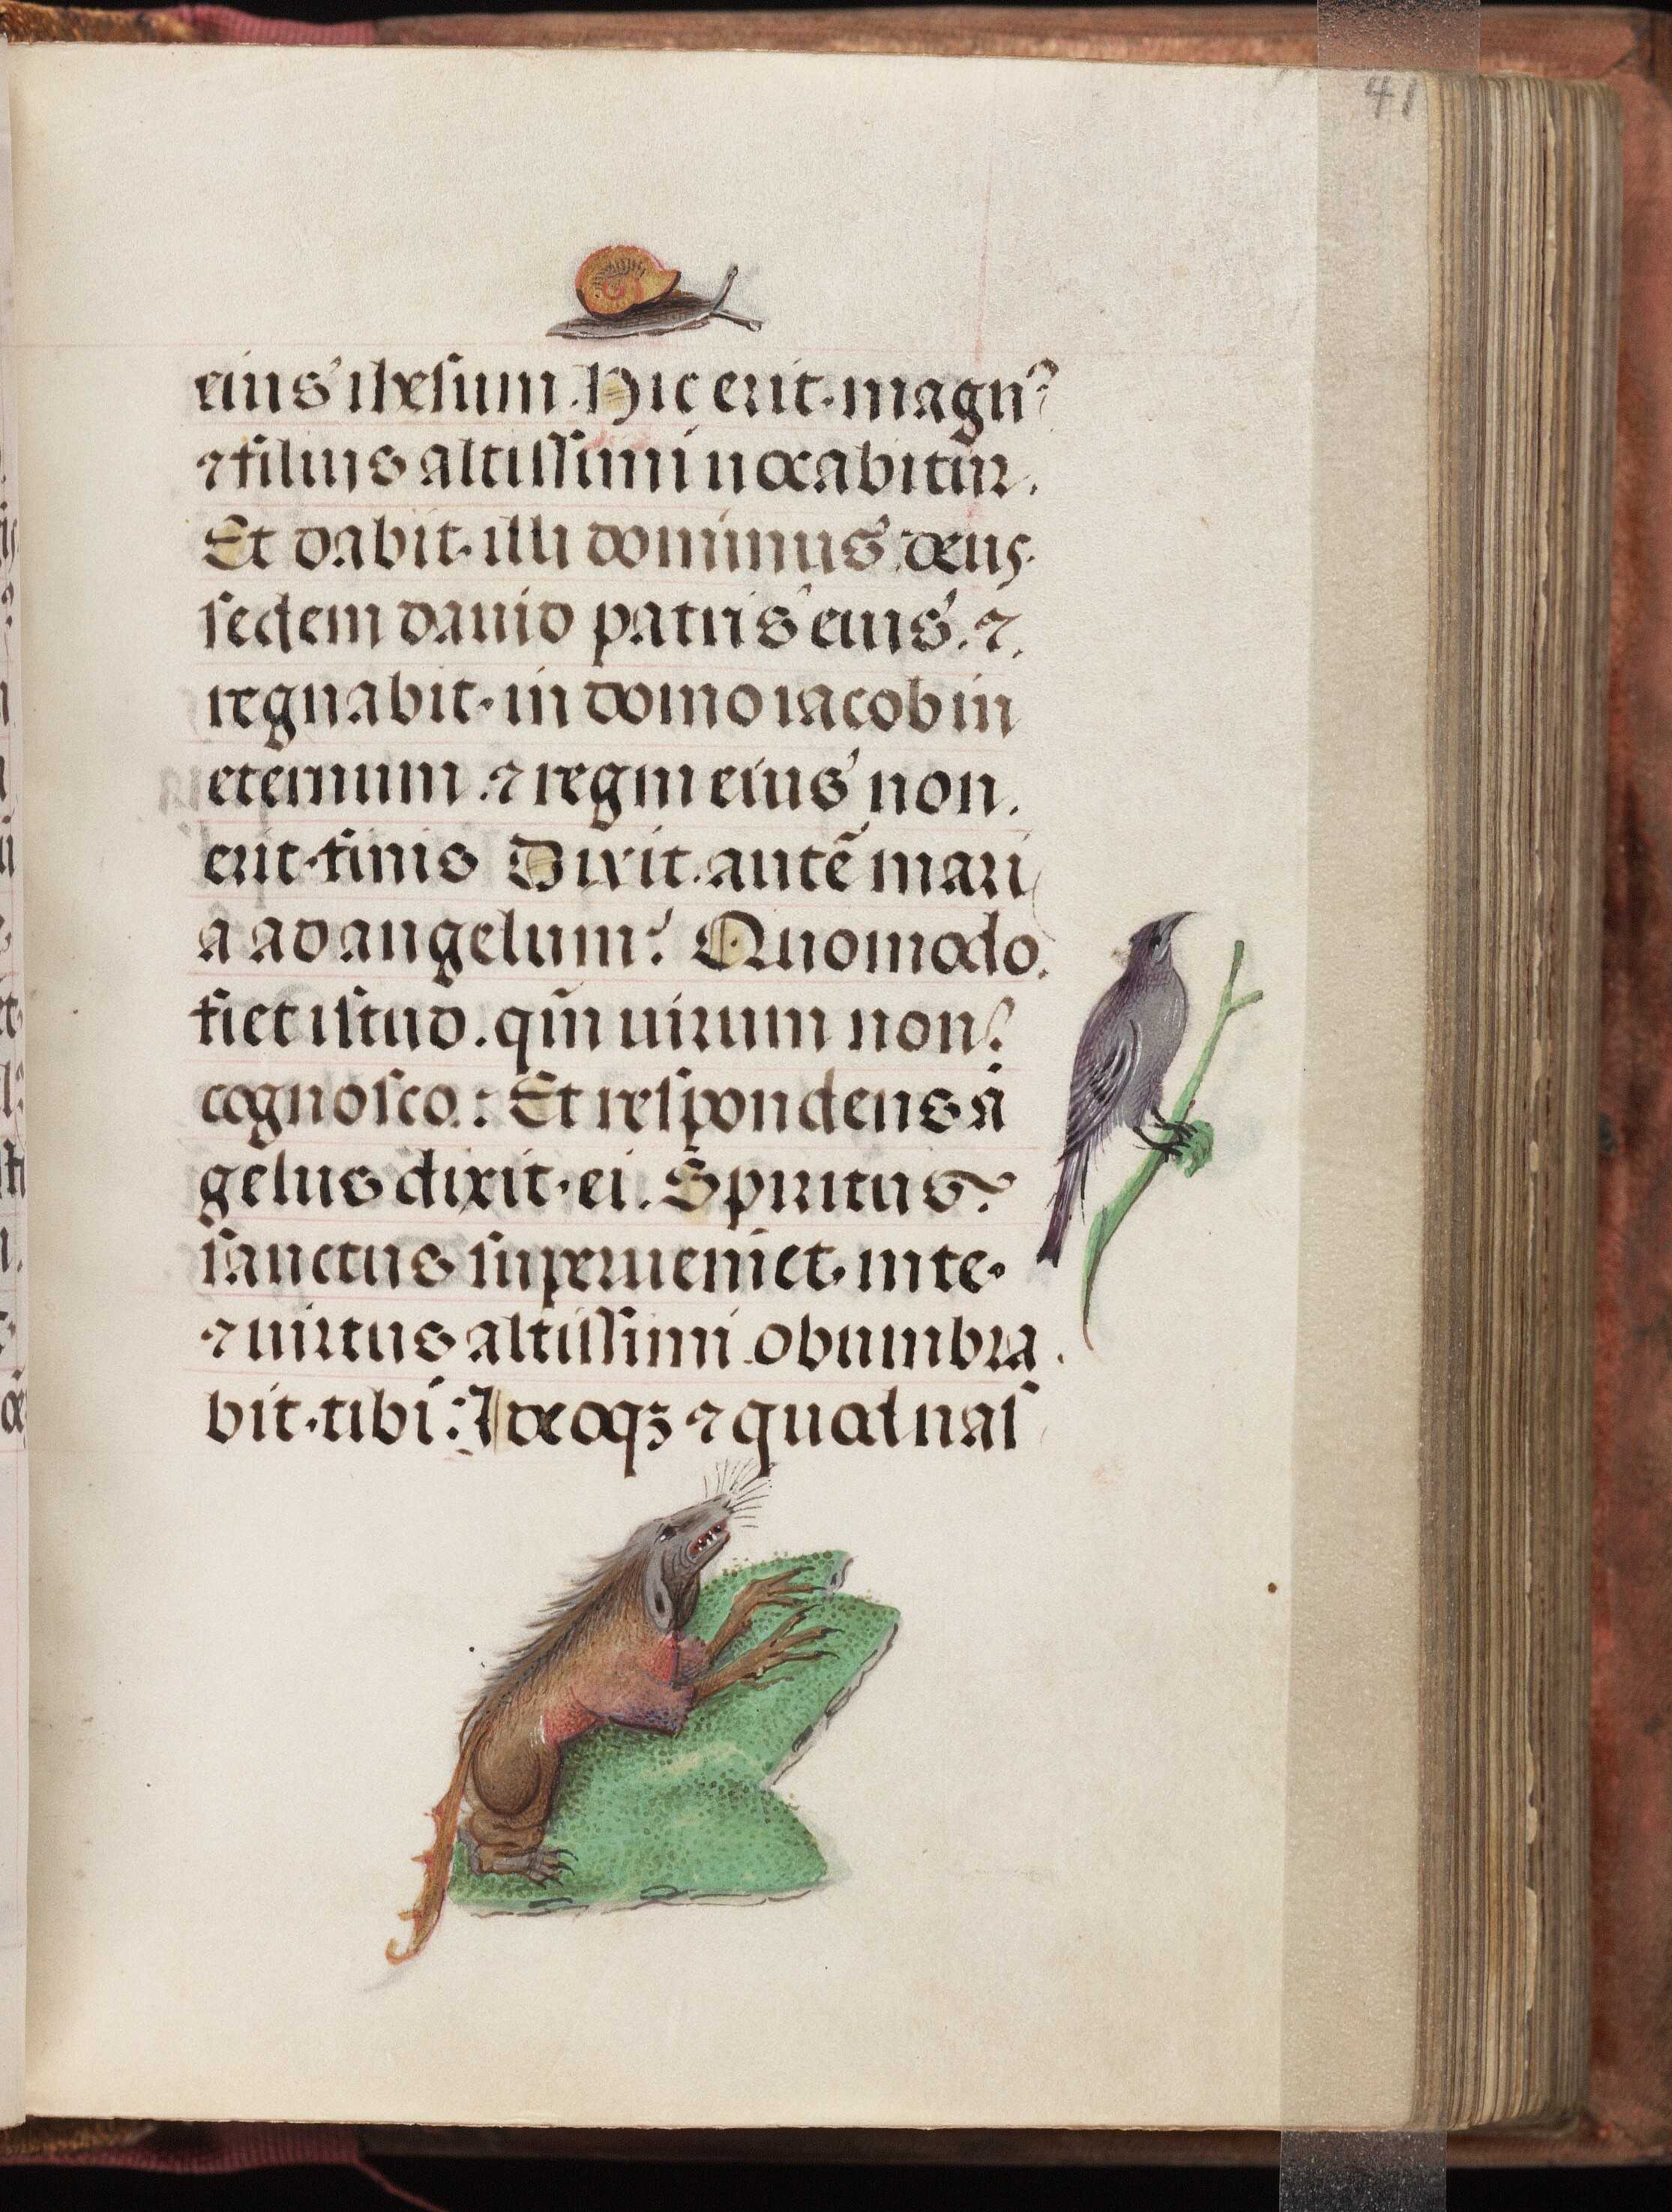 41
eius ihesum. Hic erit. magnꝰ
⁊ filius altissimi uocabitur.
Et dabit. illi dominus deus.
sedem dauid patris eius. ⁊.
regnabit. in domo iacob in
eternum. ⁊ regni eius non.
erit. finis Dixit. autē mari
a ad angelum? Quomodo.
fiet istud. qm̄ uirum non?
cognosco: Et respondens ā
gelus dixit. ei. Spiritus
sanctus superueniet. in te.
⁊ uirtus altissimi. obumbra.
bit. tibi: Ideoqꝫ ⁊ quod nas